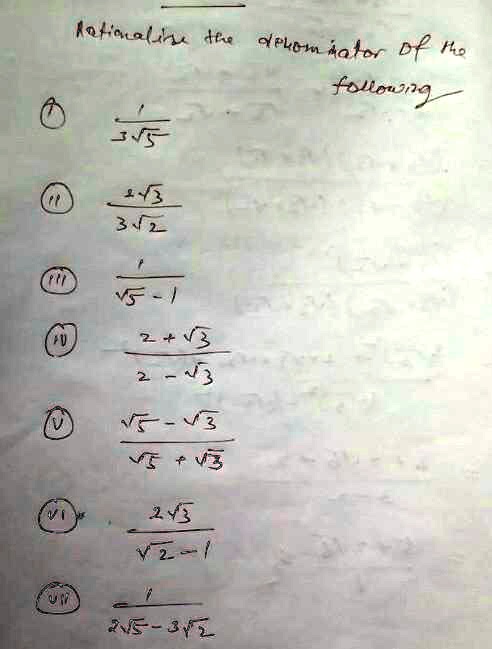 Rationalise the denominator of the
following
i 1/3√5
ii 2√3/3√2
iii 1/√5 - 1
iv 2 + √3/2 - √3
v √5 - √3/√5 + √3
vi 2√3/√2 - 1
vii 1/2√5 - 3√2